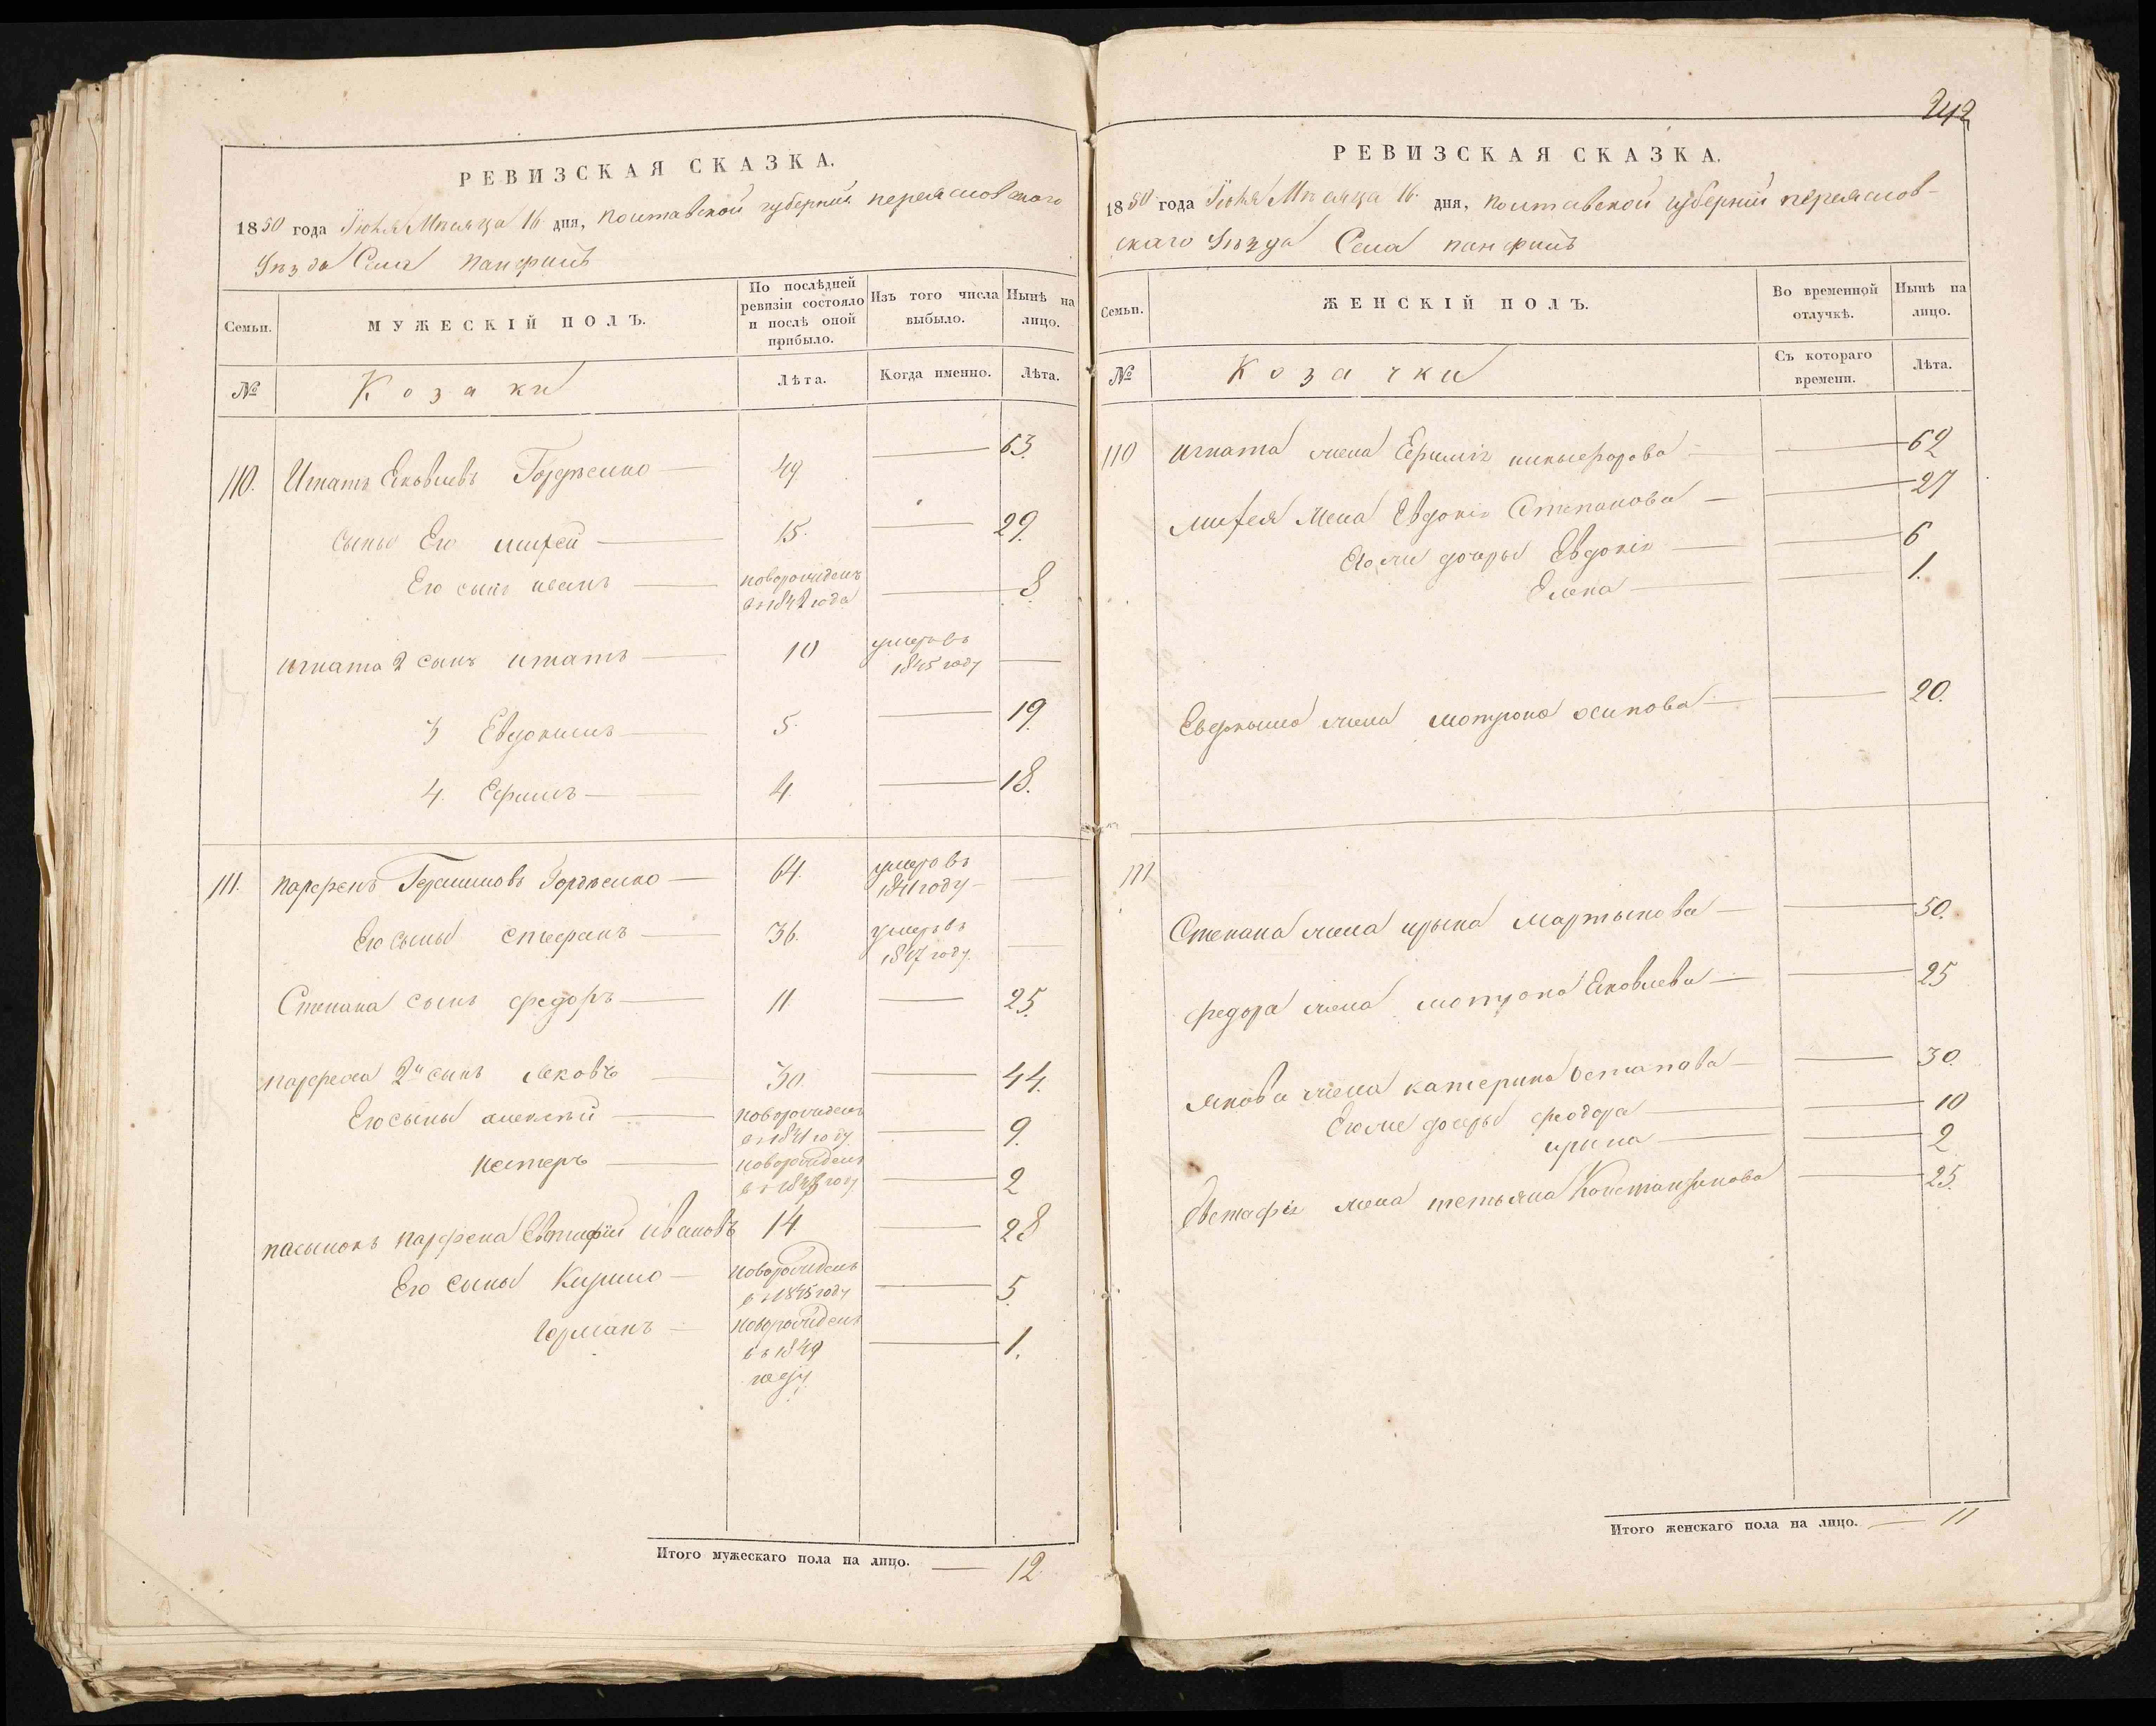 РЕВИЗСКАЯ СКАЗКА.
1850 года Іюня Мѣсяца 16 дня, полтавской губерніи переясловского
Уѣзда Села панфилъ
Семьи.
МУЖЕСКІЙ ПОЛЪ.
По послѣдней ревизіи состояло и послѣ оной прибыло.
Изъ того числа выбыло.
Нынѣ на лицо.
№
Козаки
Лѣта.
Когда именно.
Лѣта.
110. Игнатъ Яковлевъ Гордѣенко 49 63.
сыны Его 15. 29.
Его сынъ иванъ новорожденъ въ 1842 года 8
игната 2 сынъ игнатъ 10 умеръ въ 1845 году
3 Евдокимъ 5. 19.
4. Ефимъ 4. 18.
111. парфенъ Герасимовъ Гордѣенко 64. умеръ въ 1841 году
Его сыны 36. умеръ въ 1847 году.
Степана сынъ федоръ 11 25.
парфена 2й сынъ яковъ 30. 44.
Его сыны алексѣй новорожденъ въ 1841 году 9.
нестеръ новорожденъ году 2
пасынокъ парфена Евстафий ивановъ 14. 28
Его сыны Кирило новорожденъ въ 1845 году 5.
Германъ новорожденъ въ 1849 году 1.
Итого мужескаго пола на лицо. 12.
242
РЕВИЗСКАЯ СКАЗКА.
1850 года Іюня Мѣсяца 16 дня, полтавской губерніи переяслов-
скаго Уѣзда Села панфилъ
Семьи.
ЖЕНСКІЙ ПОЛЪ.
Во временной отлучкѣ.
Нынѣ на лицо.
№
Козачки
Съ котораго времени.
Лѣта.
110 игната жена 62
жена Евдокія Степанова 27
Его же дочеры Евдокія 6
Елена 1.
жена мотрона осипова 20.
111
Степана жена ирына мартынова 50.
федора жена мотрона Яковлева 25
якова жена катерина остапова 30.
Его же дочеры феодора 10
ирина 2
Евстафія жена тетьяна Константинова 25.
Итого женскаго пола на лицо. 11